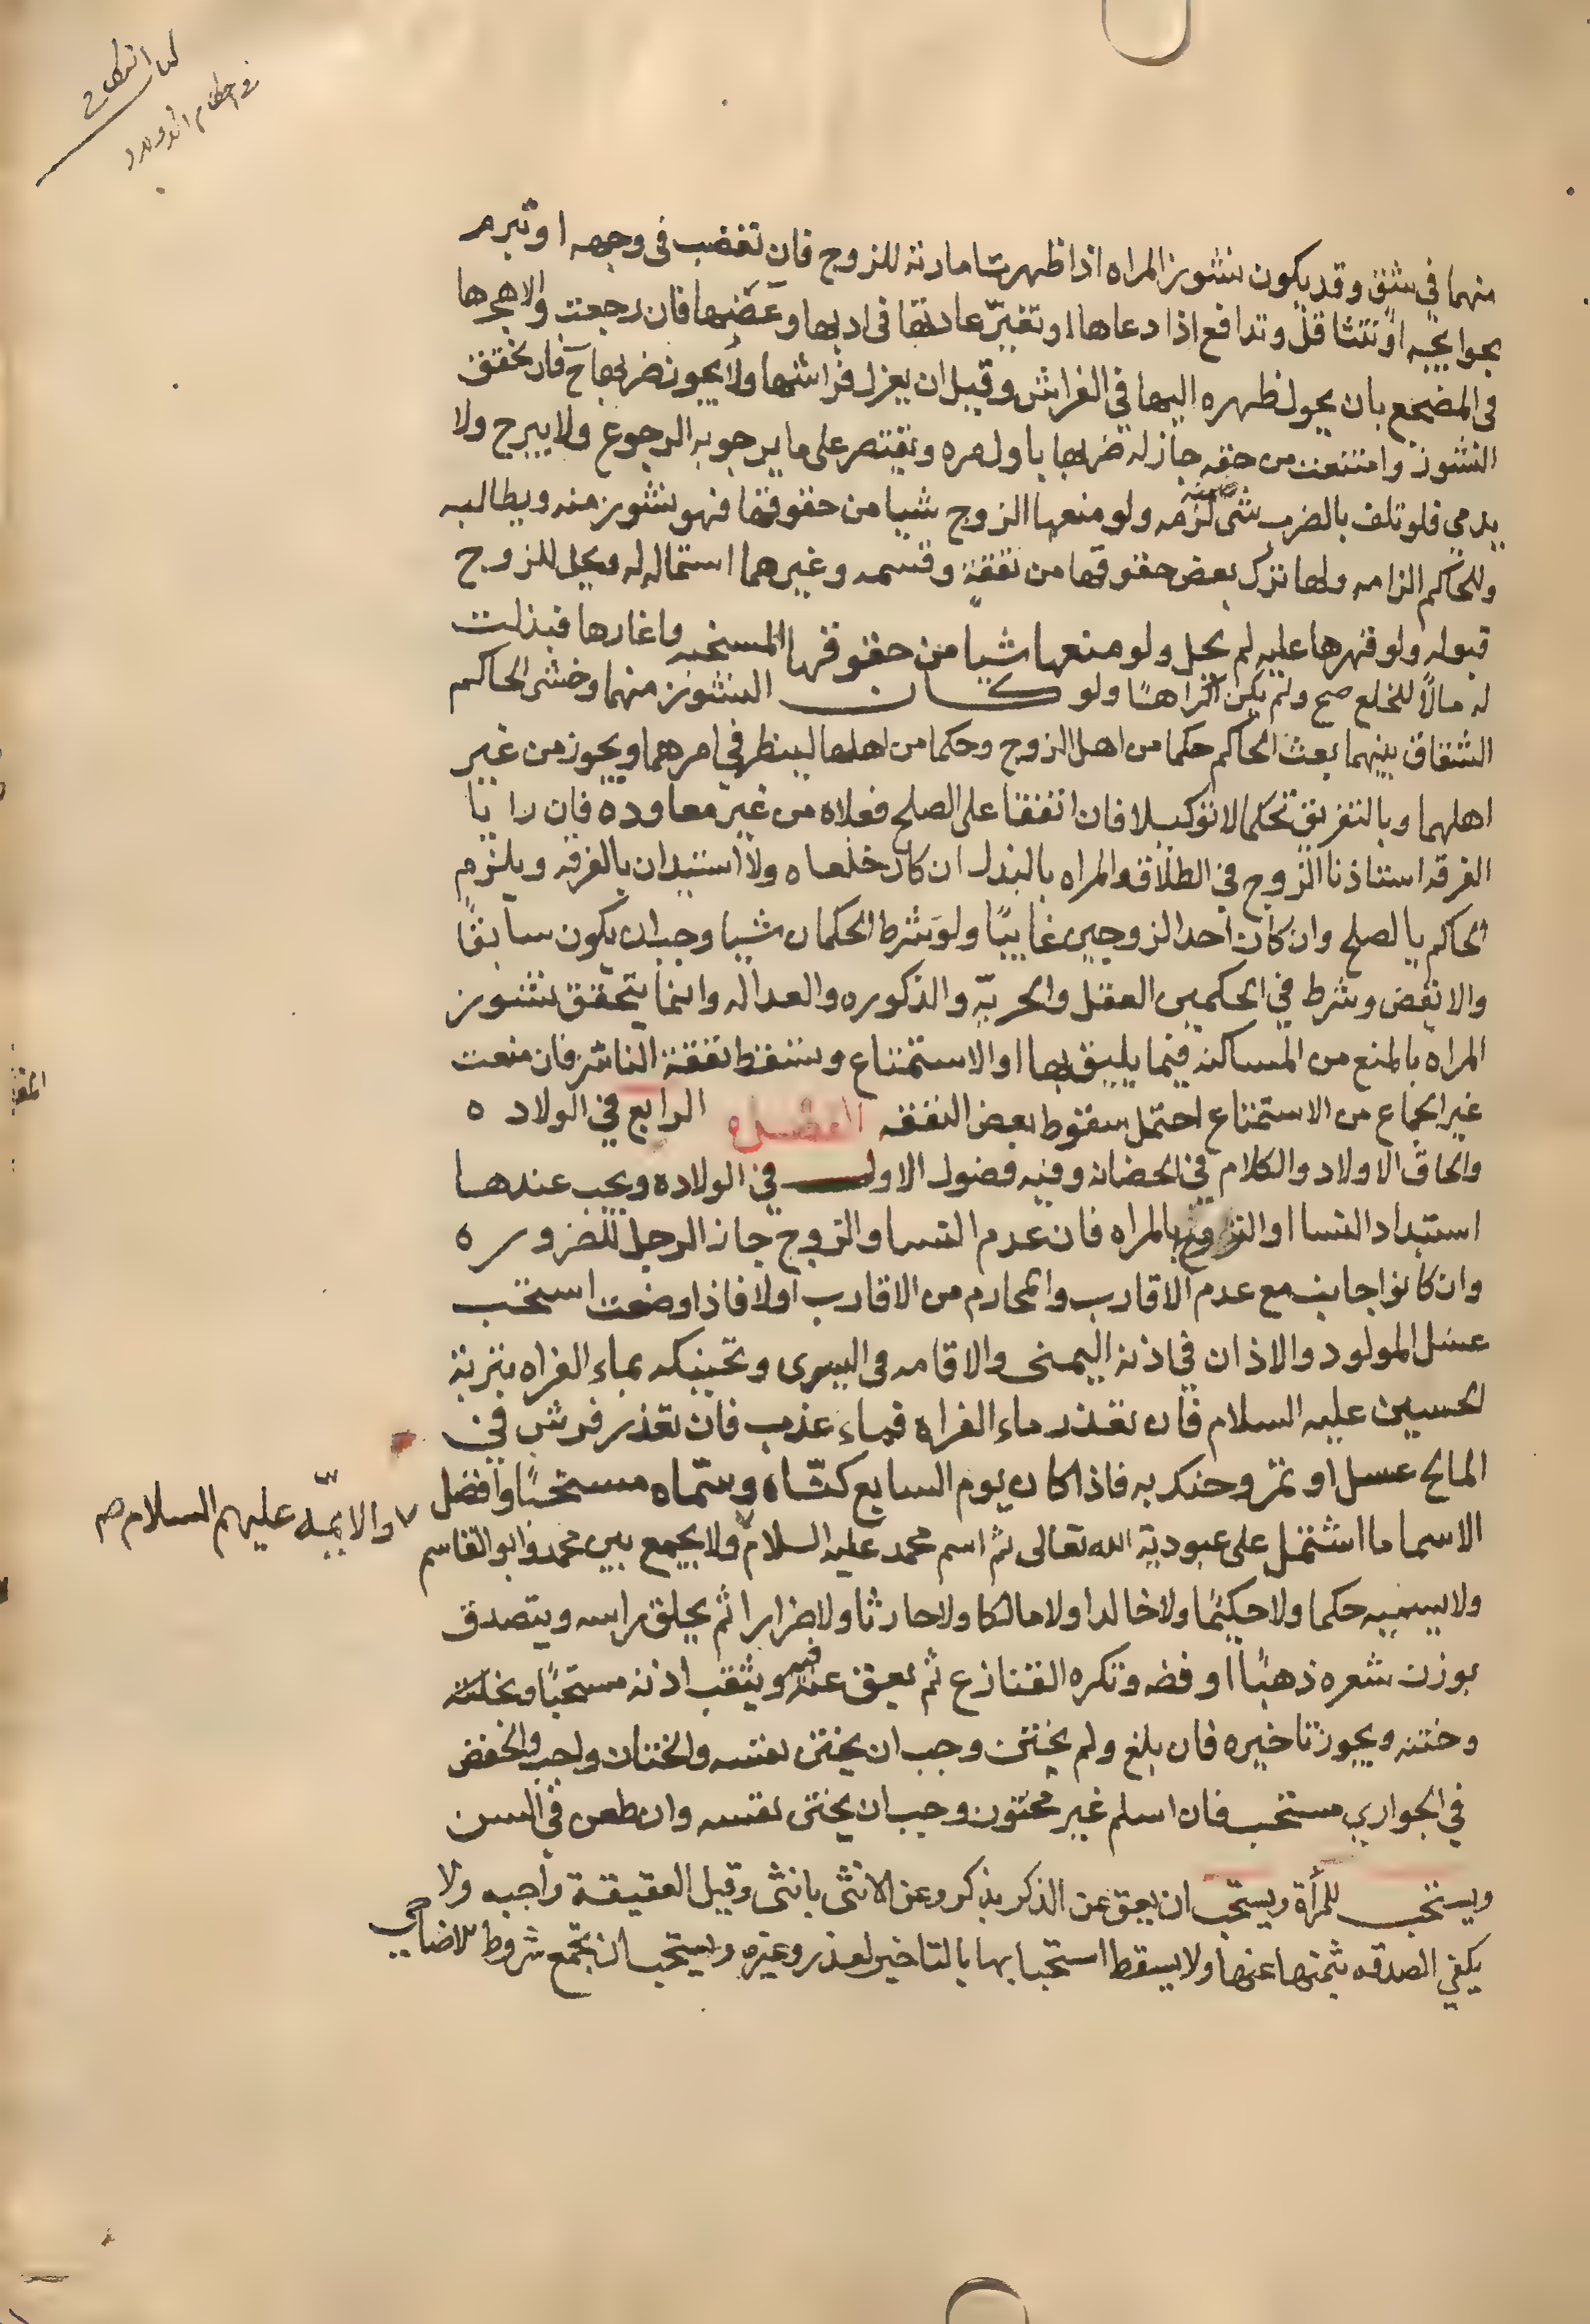 كتاب النكاح
في احكام الاولاد
منهما في شق وقد يكون نشوز المراه اذا ظهرت امارته للزوج فان تغضب في وجهه او تبرم
بحوايجه او تتثاقل وتدافع اذا دعاها او تغير عادتها في ادبها وعظها فان رجعت والا هجرها
في المضجع بان يحول ظهره اليها في الفراش وقيل ان يعزل فراشها ولا يجوز ضربها ح فان تحقق
النشوز وامتنعت من حقه جاز له ضربها باول مره ويقتصر على ما يرجو به الرجوع ولا يبرح ولا
يدمي فلو تلف بالضرب شي لزمه ولو منعها الزوج شيا من حقوقها فهو نشوز منه ويطالبه
وللحاكم الزامه ولها ترك بعض حقوقها من نفقة وقسمه وغيرهما استماله له ويحل للزوج
قبوله ولو قهرها عليه لم يحل ولو منعها شيا من حقوقها المستحبه واغارها فبذلت
له مالا للخلع صح ولم يكن اكراها ولو كان النشوز منهما وخشى الحاكم
الشقاق بينهما بعث الحاكم حكما من اهل الزوج وحكما من اهلها لينظر في امرهما ويجوز من غير
اهلهما وبالتفريق تحكيما لا توكيلا فان اتفقا على الصلح فعلاه من غير معاوده فان رايا
الفرقه استاذنا الزوج في الطلاق والمراه بالبذل ان كان خلعا ه ولا استبدان بالفرقه ويلزم
الحاكم بالصلح وان كان احد الزوجين غايبا ولو شرط الحكمان شيا وجب ان يكون سابقا
والا نقض وشرط في الحكمين العقل والحريه والذكوره والعداله وانما يتحقق نشوز
المراه بالمنع من المساكنه فيما يليق بها او الاستمتاع وتسقط نفقة الناشز فان منعت
غير الجماع من الاستمتاع احتمل سقوط بعض النفقه الفصل الرابع في الولاد ه
والحاق الاولاد والكلام في الحضانه وفيه فصول الاول في الولاده ويجب عندها
استبداد النسا او الزوج بالمراه فان عدم النسا والزوج جاز الرجل للضروره
وان كانوا اجانب مع عدم الاقارب والمحارم من الاقارب اولا فاذا وضعت استحب
غسل المولود والاذان في اذنه اليمنى والاقامه في اليسرى وتحنيكه بماء الفراه بتربة
الحسين عليه السلام فان تعذر ماء الفراه فماء عذب فان تعذر فرش في
المالح عسل او تمر وحنك به فاذا كان يوم السابع كناه وسماه مستحبا وافضل
الاسما ما اشتمل على عبودية الله تعالى ثم اسم محمد عليه السلام ولا يجمع بين محمد وابو القاسم
والايمه عليهم السلام صح
ولا يسميه حكما ولا حكيما ولا خالدا ولا مالكا ولا حارثا ولا ضرارا ثم يحلق راسه ويتصدق
بوزن شعره ذهبا او فضه وتكره القنازع ثم يعق عنه فيه ويثقب اذنه مستحبا
وختنه ويجوز تاخيره فان بلغ ولم يختن وجب ان يختن نفسه والختان واجب والخفض
في الجواري مستحب فان اسلم غير مختون وجب ان يختن نفسه وان طعن في السن
ويستحب للمرأة ويستحب ان يعق عن الذكر بذكر وعن الانثى بانثى وقيل العقيقة واجبه ولا
يكفي الصدقه بثمنها عنها ولا يسقط استحبابها بالتاخير لعذر وغيره ويستحب ان تجمع شروط الاضاحي